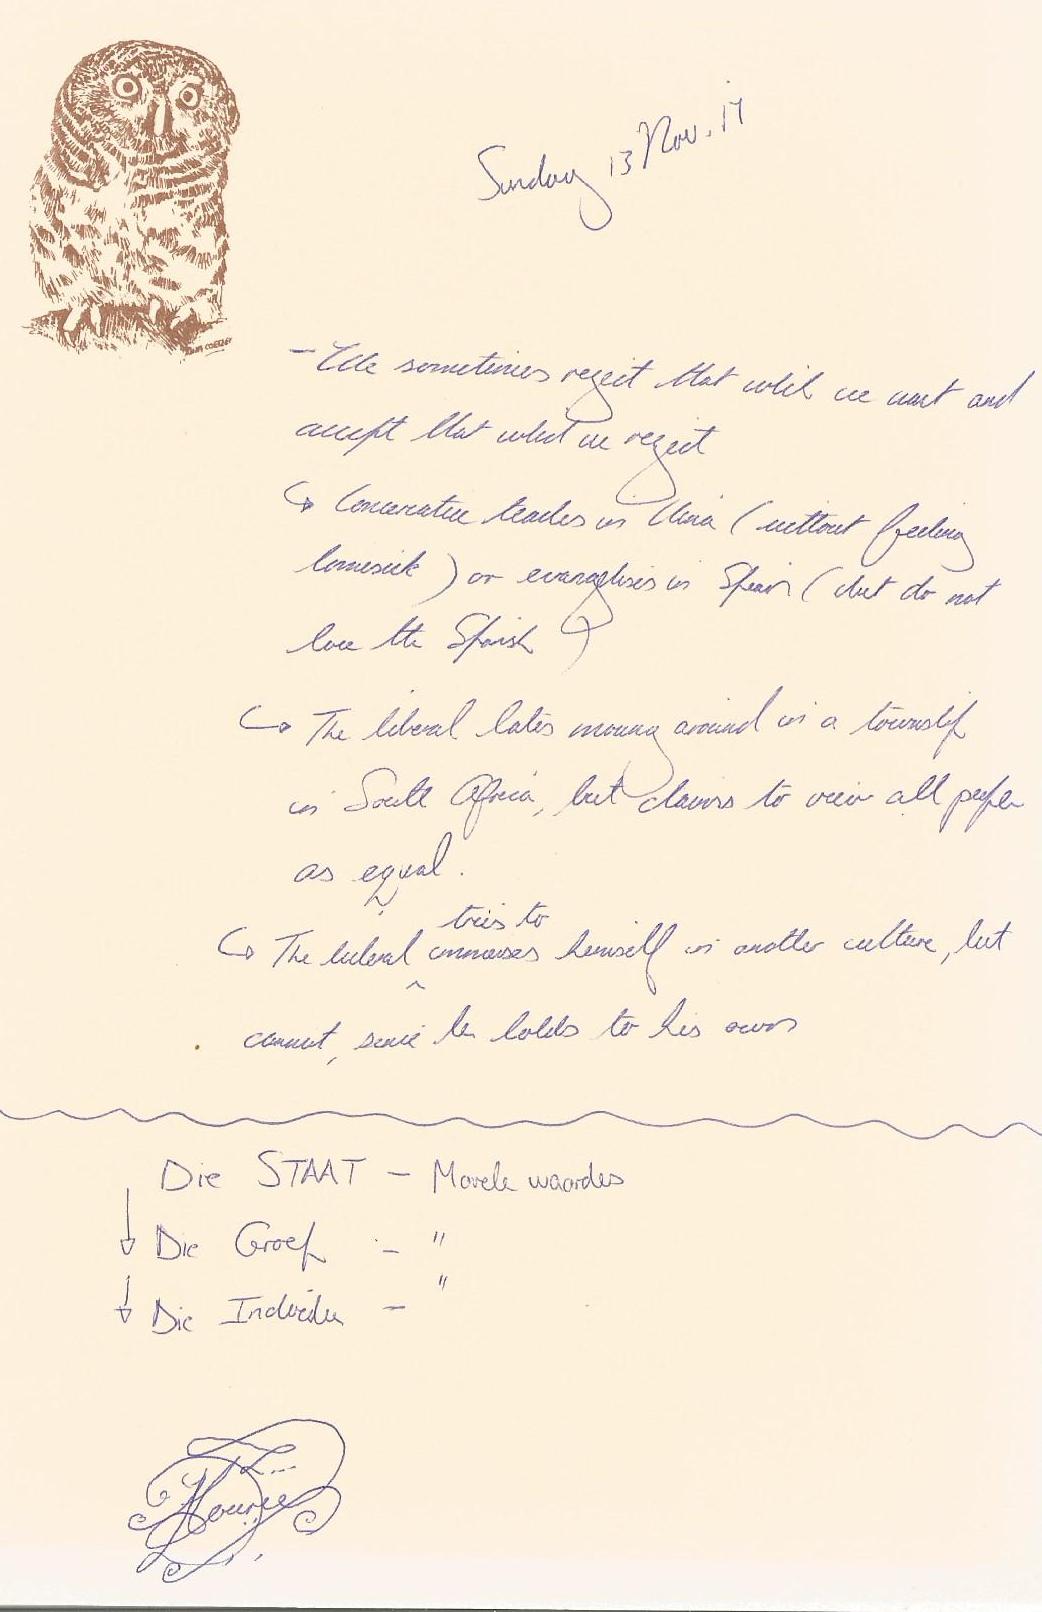 Sunday 13 Nov. 17
- We sometimes reject that which we want and
accept that which we reject
↳ Conservative teaches in China (without feeling
homesick) or evangelises in Spain (but do not
love the Spanish)
↳ The liberal hates moving around in a township
in South Africa, but claims to view all people
as equal.
tries to
↳ The liberal immerses himself in another culture, but
cannot, since he holds to his own
Die STAAT - Morele waardes
Die Groep - "
Die Individu - "